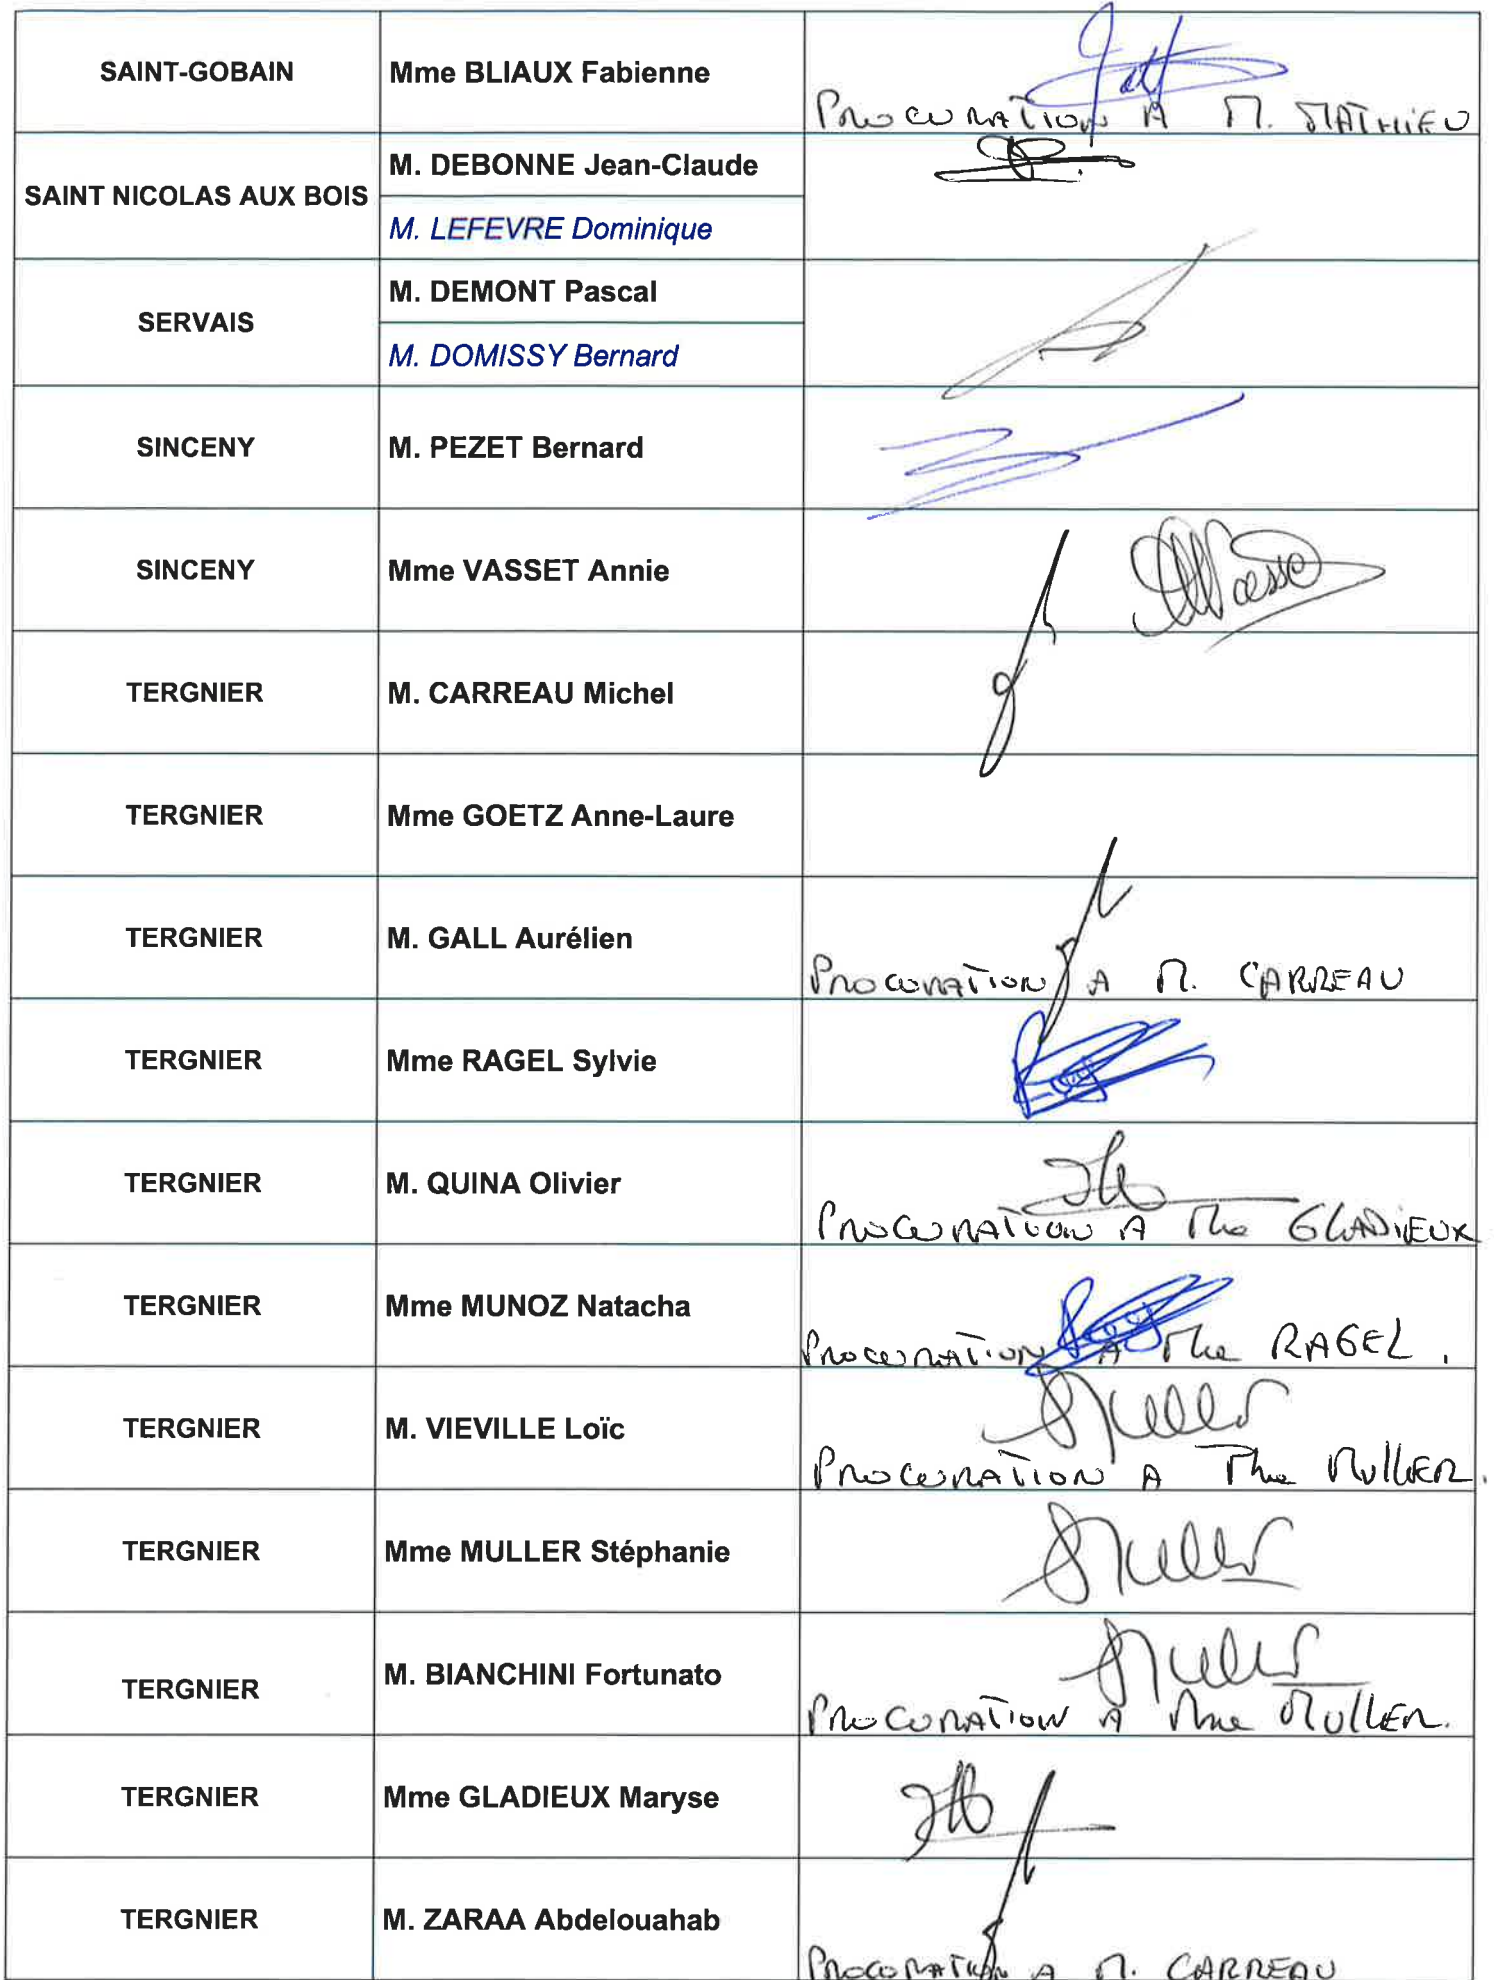 SAINT-GOBAIN
Mme BLIAUX Fabienne
PROCURATION A M. MATHIEU
SAINT NICOLAS AUX BOIS
M. DEBONNE Jean-Claude
M. LEFEVRE Dominique
SERVAIS
M. DEMONT Pascal
M. DOMISSY Bernard
SINCENY
M. PEZET Bernard
SINCENY
Mme VASSET Annie
TERGNIER
M. CARREAU Michel
TERGNIER
Mme GOETZ Anne-Laure
TERGNIER
M. GALL Aurélien
PROCURATION A M. CARREAU
TERGNIER
Mme RAGEL Sylvie
TERGNIER
M. QUINA Olivier
PROCURATION A Mme GLADIEUX
TERGNIER
Mme MUNOZ Natacha
PROCURATION A Mme RAGEL.
TERGNIER
M. VIEVILLE Loïc
Muller
PROCURATION A Mme MULLER.
TERGNIER
Mme MULLER Stéphanie
Muller
TERGNIER
M. BIANCHINI Fortunato
Muller
PROCURATION A Mme MULLER.
TERGNIER
Mme GLADIEUX Maryse
TERGNIER
M. ZARAA Abdelouahab
PROCURATION A M. CARREAU